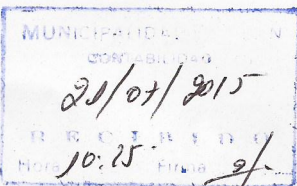 MUNICIPALIDAD N
CONTABILIDAD
21/07/2015
RECIBIDO
Hora 10:25 Firma